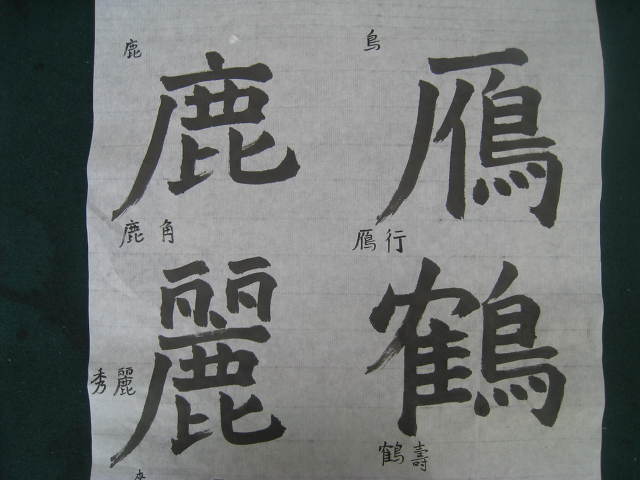 鹿
鳥
鹿
鴈
鹿角
鴈行
麗
鶴
秀麗
鶴壽